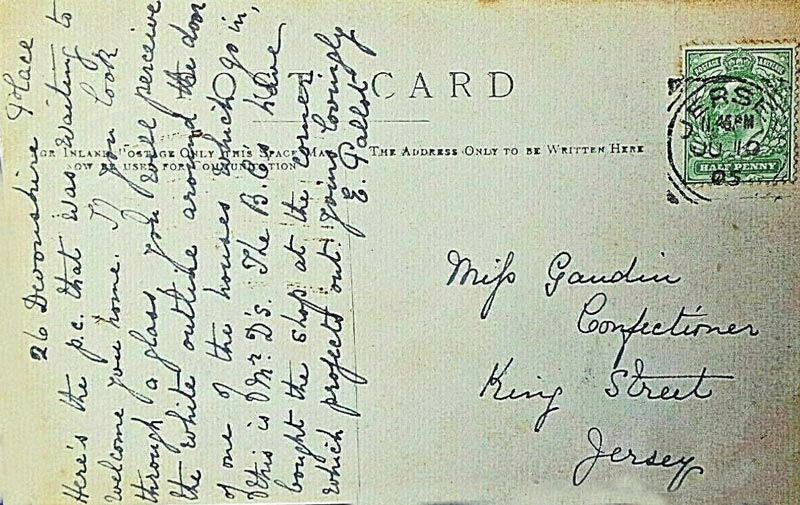 POST CARD
FOR INLAND POSTAGE ONLY THIS SPACE MAY
NOW BE USED FOR COMMUNICATION
THE ADDRESS ONLY TO BE WRITTEN HERE
26 Devonshire Place
Here's the p.c. that was waiting to
welcome you home. If you look
through a glass you will perceive
the white outline around the door
of one of the houses which go in,
this is Mr D's. The B.C's have
bought the shop at the corner
which projects out. Yours lovingly
E. Pallot
Miss Gaudin
Confectioner
King Street
Jersey
POSTAGE REVENUE
HALF PENNY
JERSEY
11.45 PM
JU 10
05